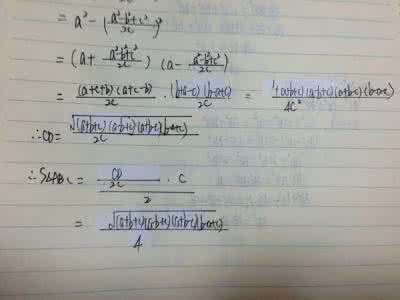 = a² - (a²-b²+c²/2c)²
= (a + a²-b²+c²/2c) (a - a²-b²+c²/2c)
= (a+c+b)(a+c-b)/2c · (b+a-c)(b-a+c)/2c = (a+b+c)(a-b+c)(a+b-c)(b-a+c)/4c²
∴CD= √(a+b+c)(a-b+c)(a+b-c)(b-a+c)/2c
∴S△ABC = CD/2c · c/2
= √(a+b+c)(a-b+c)(a+b-c)(b-a+c)/4